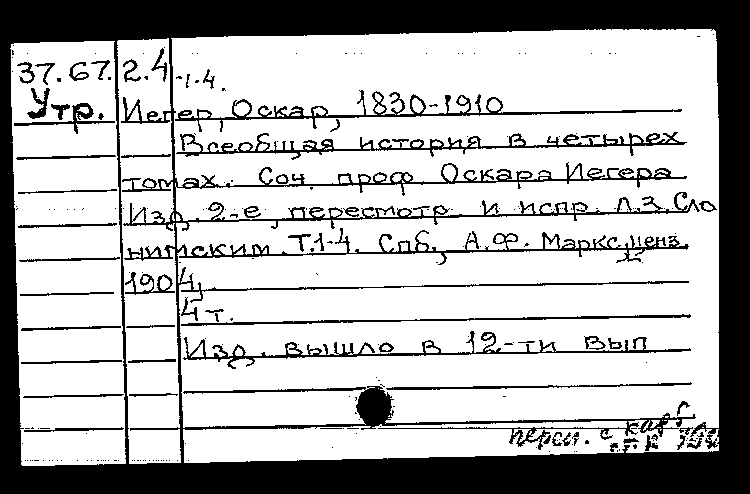 37.67.2.4-1.4.
Утр. Иегер, Оскар, 1830-1910
Всеобщая история в четырех
томах. Соч. проф. Оскара Иегера
Изд. 2-е, пересмотр. и испр. Л.З. Сло
нимским. Т.1-4. Спб., А.Ф. Маркс, ценз.
1904.
4 т.
Изд. вышло в 12-ти вып